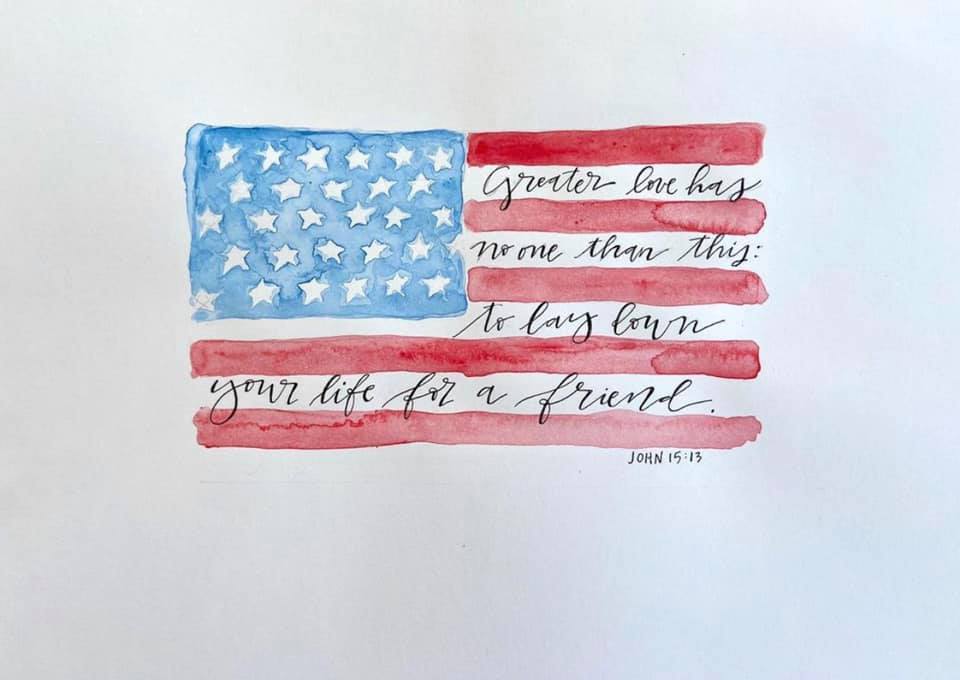 Greater love has
no one than this:
to lay down
your life for a friend.
JOHN 15:13